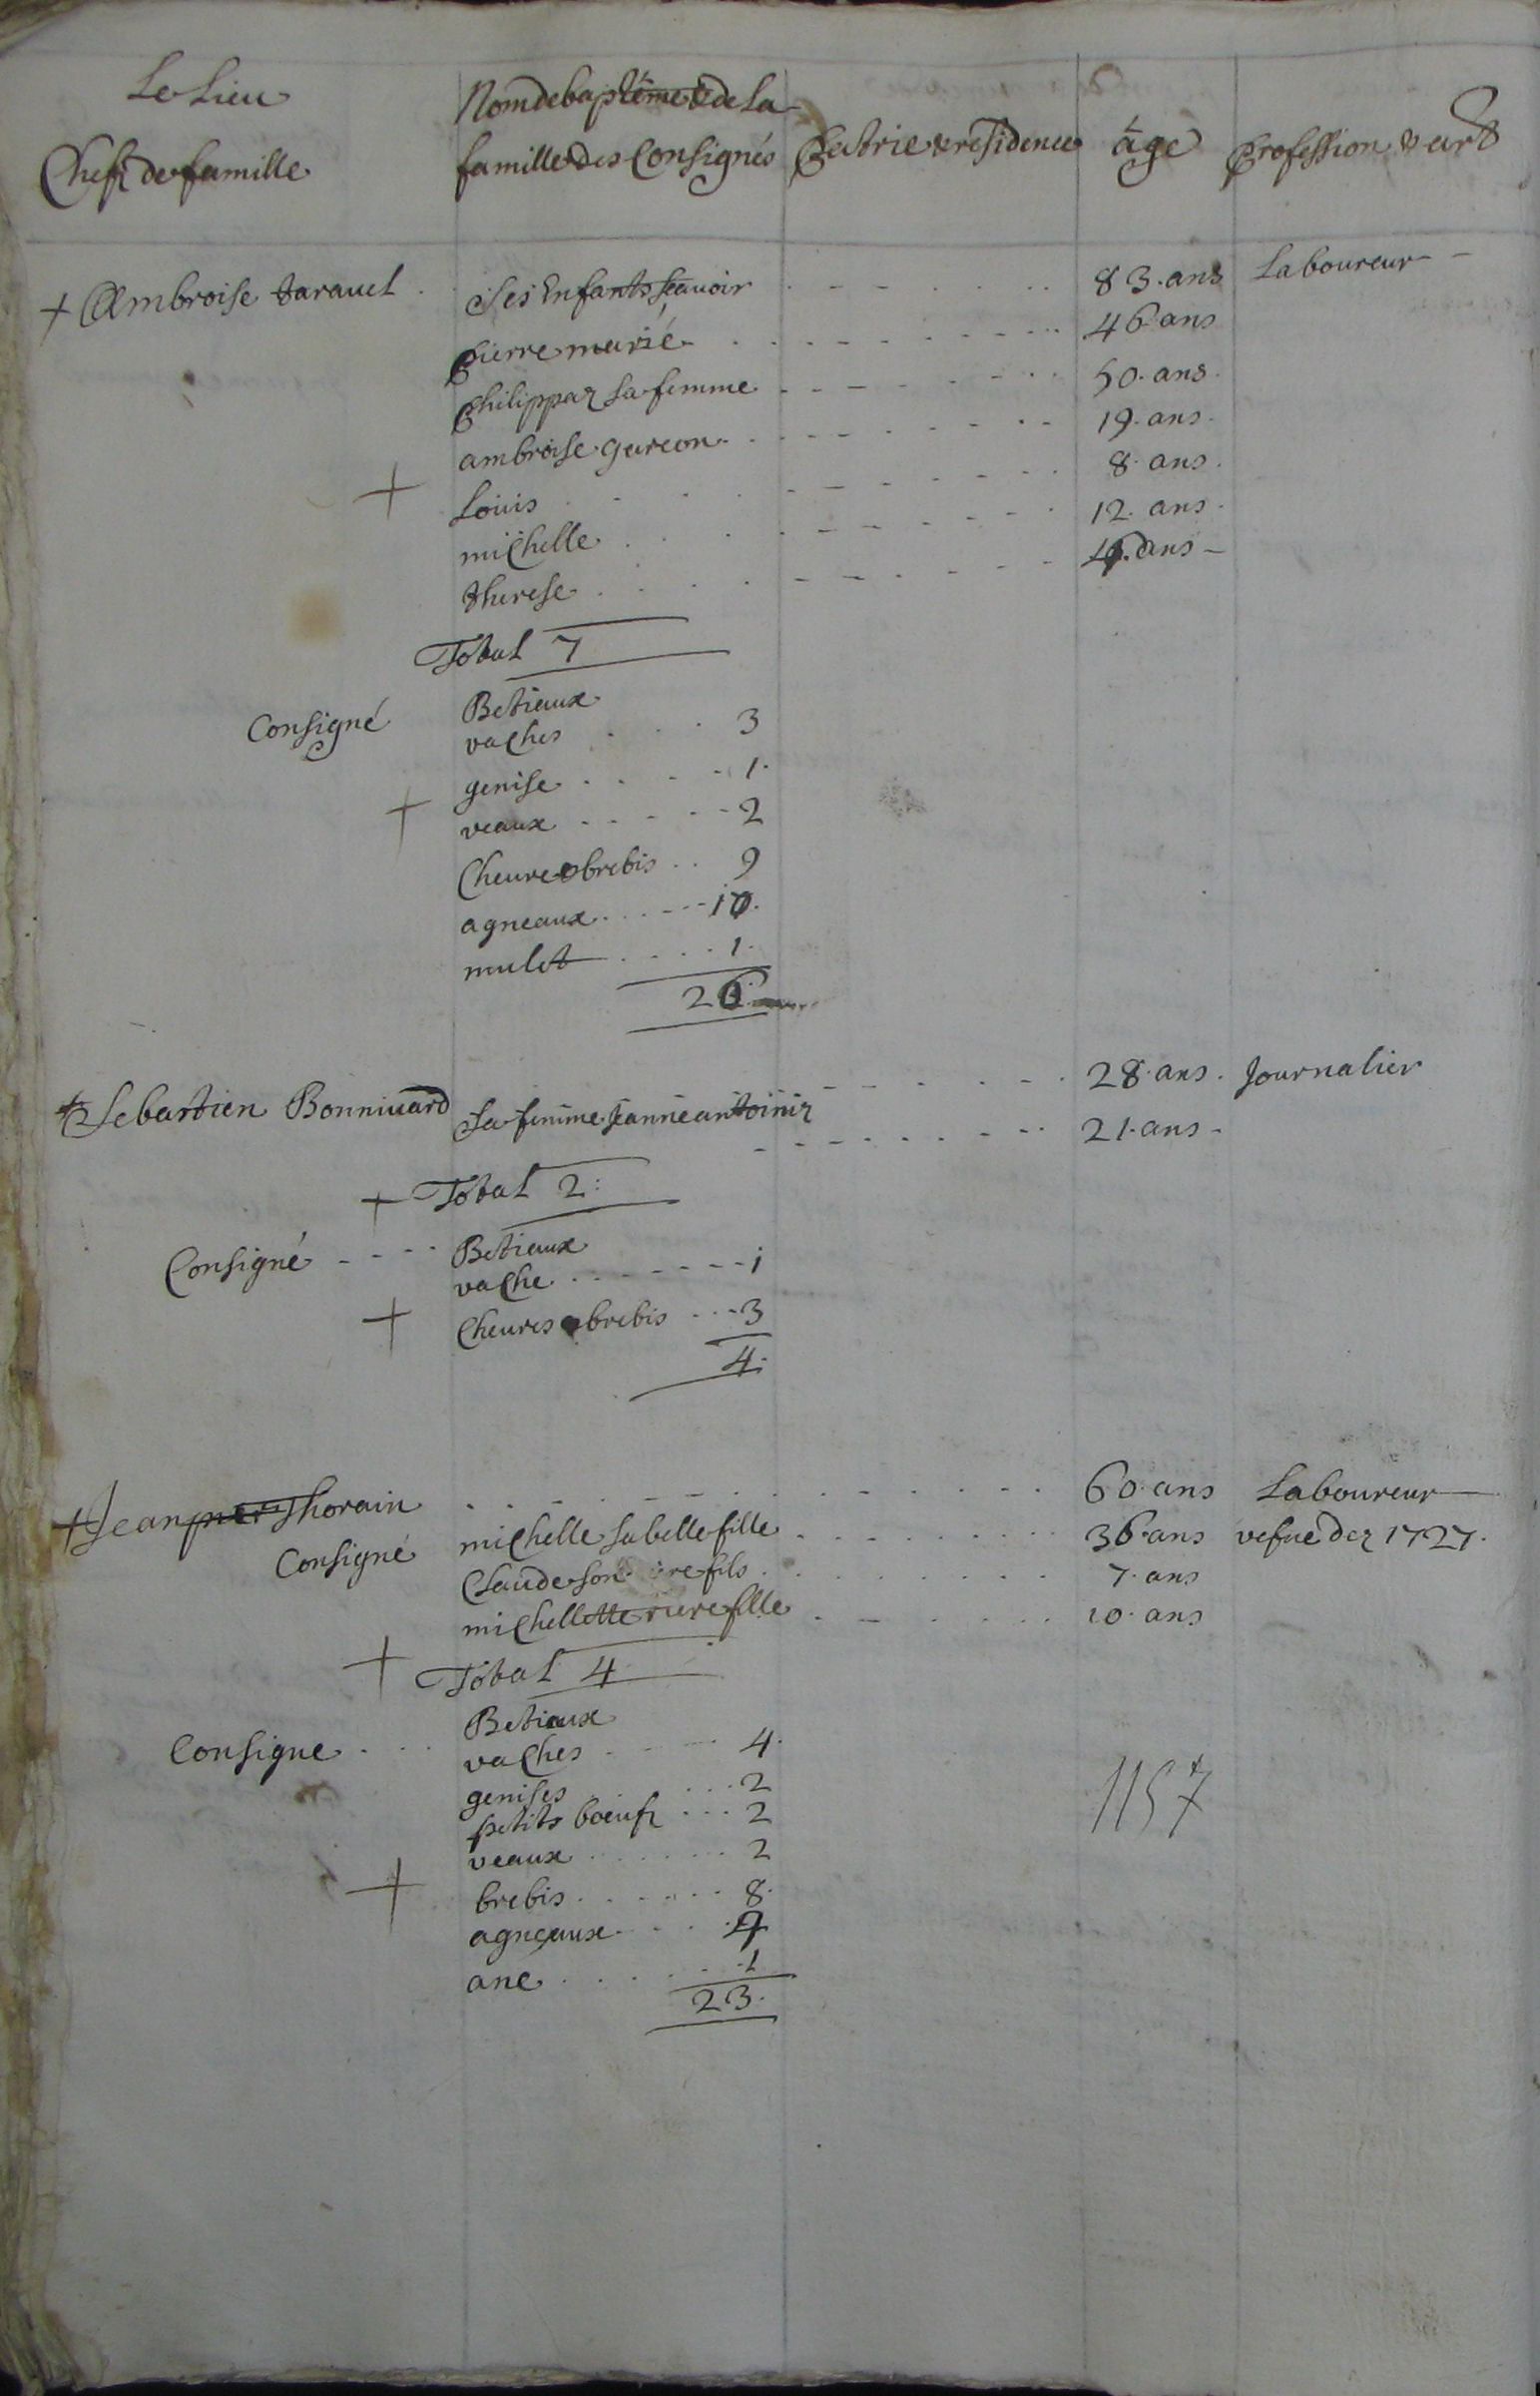 Le Lieu
Chefz de famille
Nom de baptême & de La
famille des Consignés
Patrie & residence
âge
Profession & art
+ Ambroise taravel . Ses Enfants sçavoir 83. ans Laboureur
pierre marié 46 ans
philippaz sa femme 50. ans
ambroise garcon 19. ans
+ Louis 8. ans
michelle 12. ans
therese ans
Total 7
Consigné Betiaux
vaches 3
genise 1
+ veaux 2
Cheure & brebis 9
agneaux 10
mulet 1
26
+ Sebastien Bonniuard 28. ans . Journalier
sa femme Jeanne antoinaz 21. ans
+ Total 2
Consigné Betiaux
vache 1
+ Cheures & brebis 3
4
+ Jean Thorain 60. ans Laboureur
Consigné michelle sa belle fille 36. ans vefue dez 1727.
Claude son fils 7. ans
michellette riere fille 10. ans
+ Total 4
Consigne Betiaux
vaches 4
genises 2
petits boeufz 2
veaux 2
+ brebis 8
agneaux 4
ane 1
23
1157